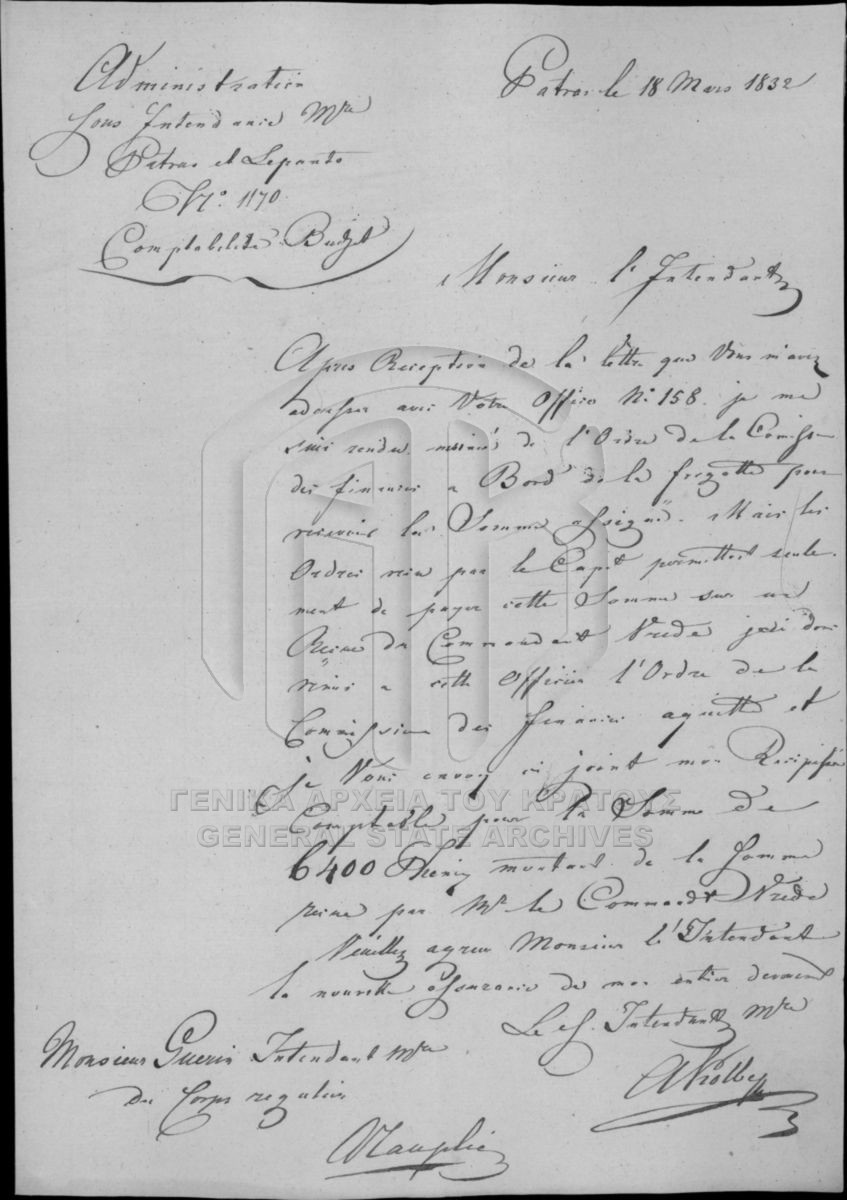 Administration
Sous Intendance Mre
Patras et Lepanto
No. 1170
Comptabilité Budget
Patras le 18 Mars 1832
Monsieur l'Intendant
Apres Reception de la lettre que Vous m'avez
adresser avec Votre Office No 158. je me
suis rendu muni de l'Ordre de la Comission
des finances a Bord de la fregatte pour
recevoir la Somme assignée. Mais les
Ordres reçu par le Capt permettoit seule-
ment de payer cette Somme sur un
Reçue du Commandant Vrede j'ai donc
remis a cette Officier l'Ordre de la
Commission des finances aquitté et
je Vous envoy ci joint mon Recipissé
Comptable pour la Somme de
6400 Phenix montant de la Somme
reçue par Mr le Commandt Vrede
Veuillez agreer Monsieur l'Intendant
la nouvelle assurance de mon entier devouement
Le S. Intendant Mre
Monsieur Guerin Intendant Mre
du Corps regulier
Nauplie
ΓΕΝΙΚΑ ΑΡΧΕΙΑ ΤΟΥ ΚΡΑΤΟΥΣ
GENERAL STATE ARCHIVES